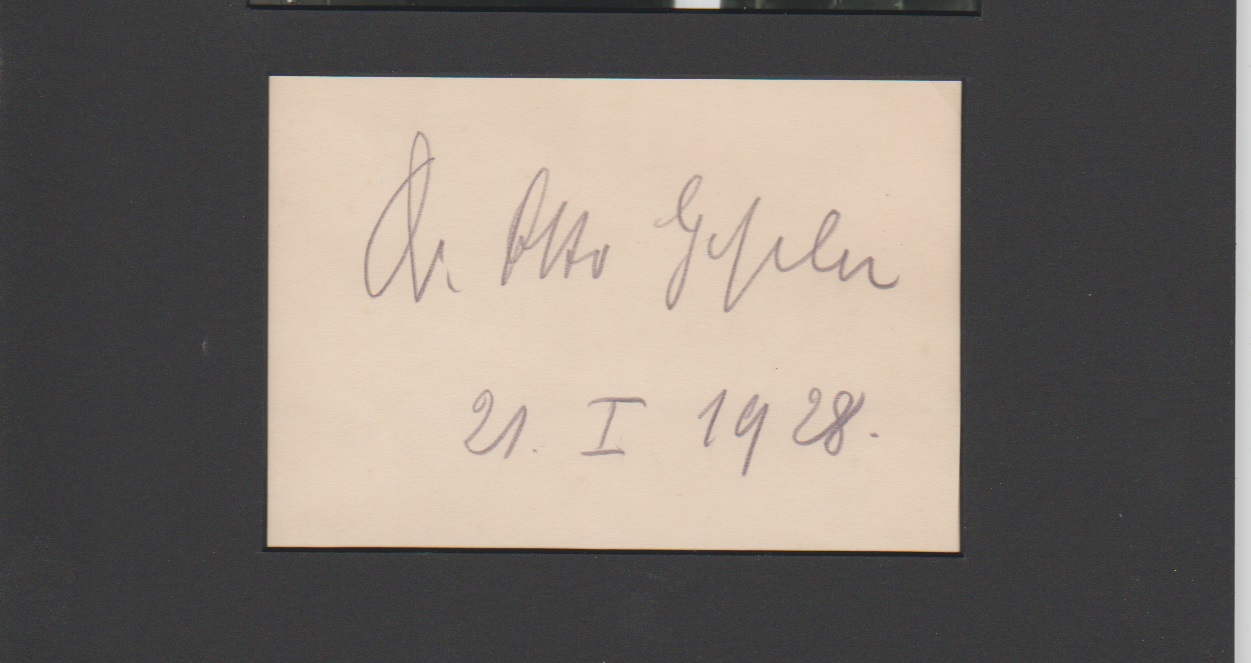 Dr. Otto Geßler
21. I 1928.